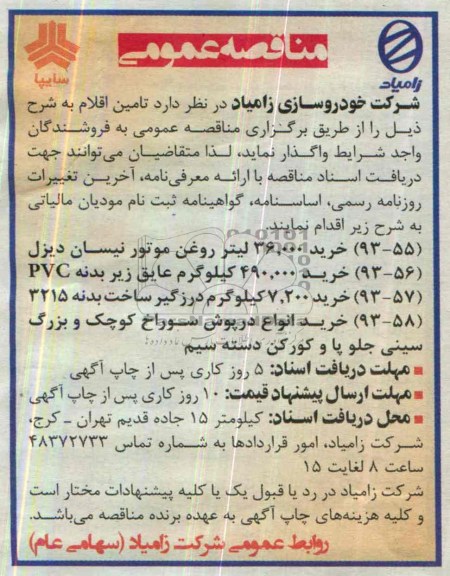 مناقصه عمومی
سایپا
زامیاد
شرکت خودروسازی زامیاد در نظر دارد تامین اقلام به شرح
ذیل را از طریق برگزاری مناقصه عمومی به فروشندگان
واجد شرایط واگذار نماید، لذا متقاضیان می‌توانند جهت
دریافت اسناد مناقصه با ارائه معرفی‌نامه، آخرین تغییرات
روزنامه رسمی، اساسنامه، گواهینامه ثبت نام مودیان مالیاتی
به شرح زیر اقدام نمایند.
(۹۳-۵۵) خرید ۳۶,۰۰۰ لیتر روغن موتور نیسان دیزل
(۹۳-۵۶) خرید ۴۹۰,۰۰۰ کیلوگرم عایق زیر بدنه PVC
(۹۳-۵۷) خرید ۷,۲۰۰ کیلوگرم درزگیر ساخت بدنه ۳۲۱۵
(۹۳-۵۸) خرید انواع درپوش سوراخ کوچک و بزرگ
سینی جلو پا و کورکن دسته سیم
■ مهلت دریافت اسناد: ۵ روز کاری پس از چاپ آگهی
■ مهلت ارسال پیشنهاد قیمت: ۱۰ روز کاری پس از چاپ آگهی
■ محل دریافت اسناد: کیلومتر ۱۵ جاده قدیم تهران ـ کرج،
شرکت زامیاد، امور قراردادها به شماره تماس ۴۸۳۷۲۷۳۳
ساعت ۸ لغایت ۱۵
شرکت زامیاد در رد یا قبول یک یا کلیه پیشنهادات مختار است
و کلیه هزینه‌های چاپ آگهی به عهده برنده مناقصه می‌باشد.
روابط عمومی شرکت زامیاد (سهامی عام)